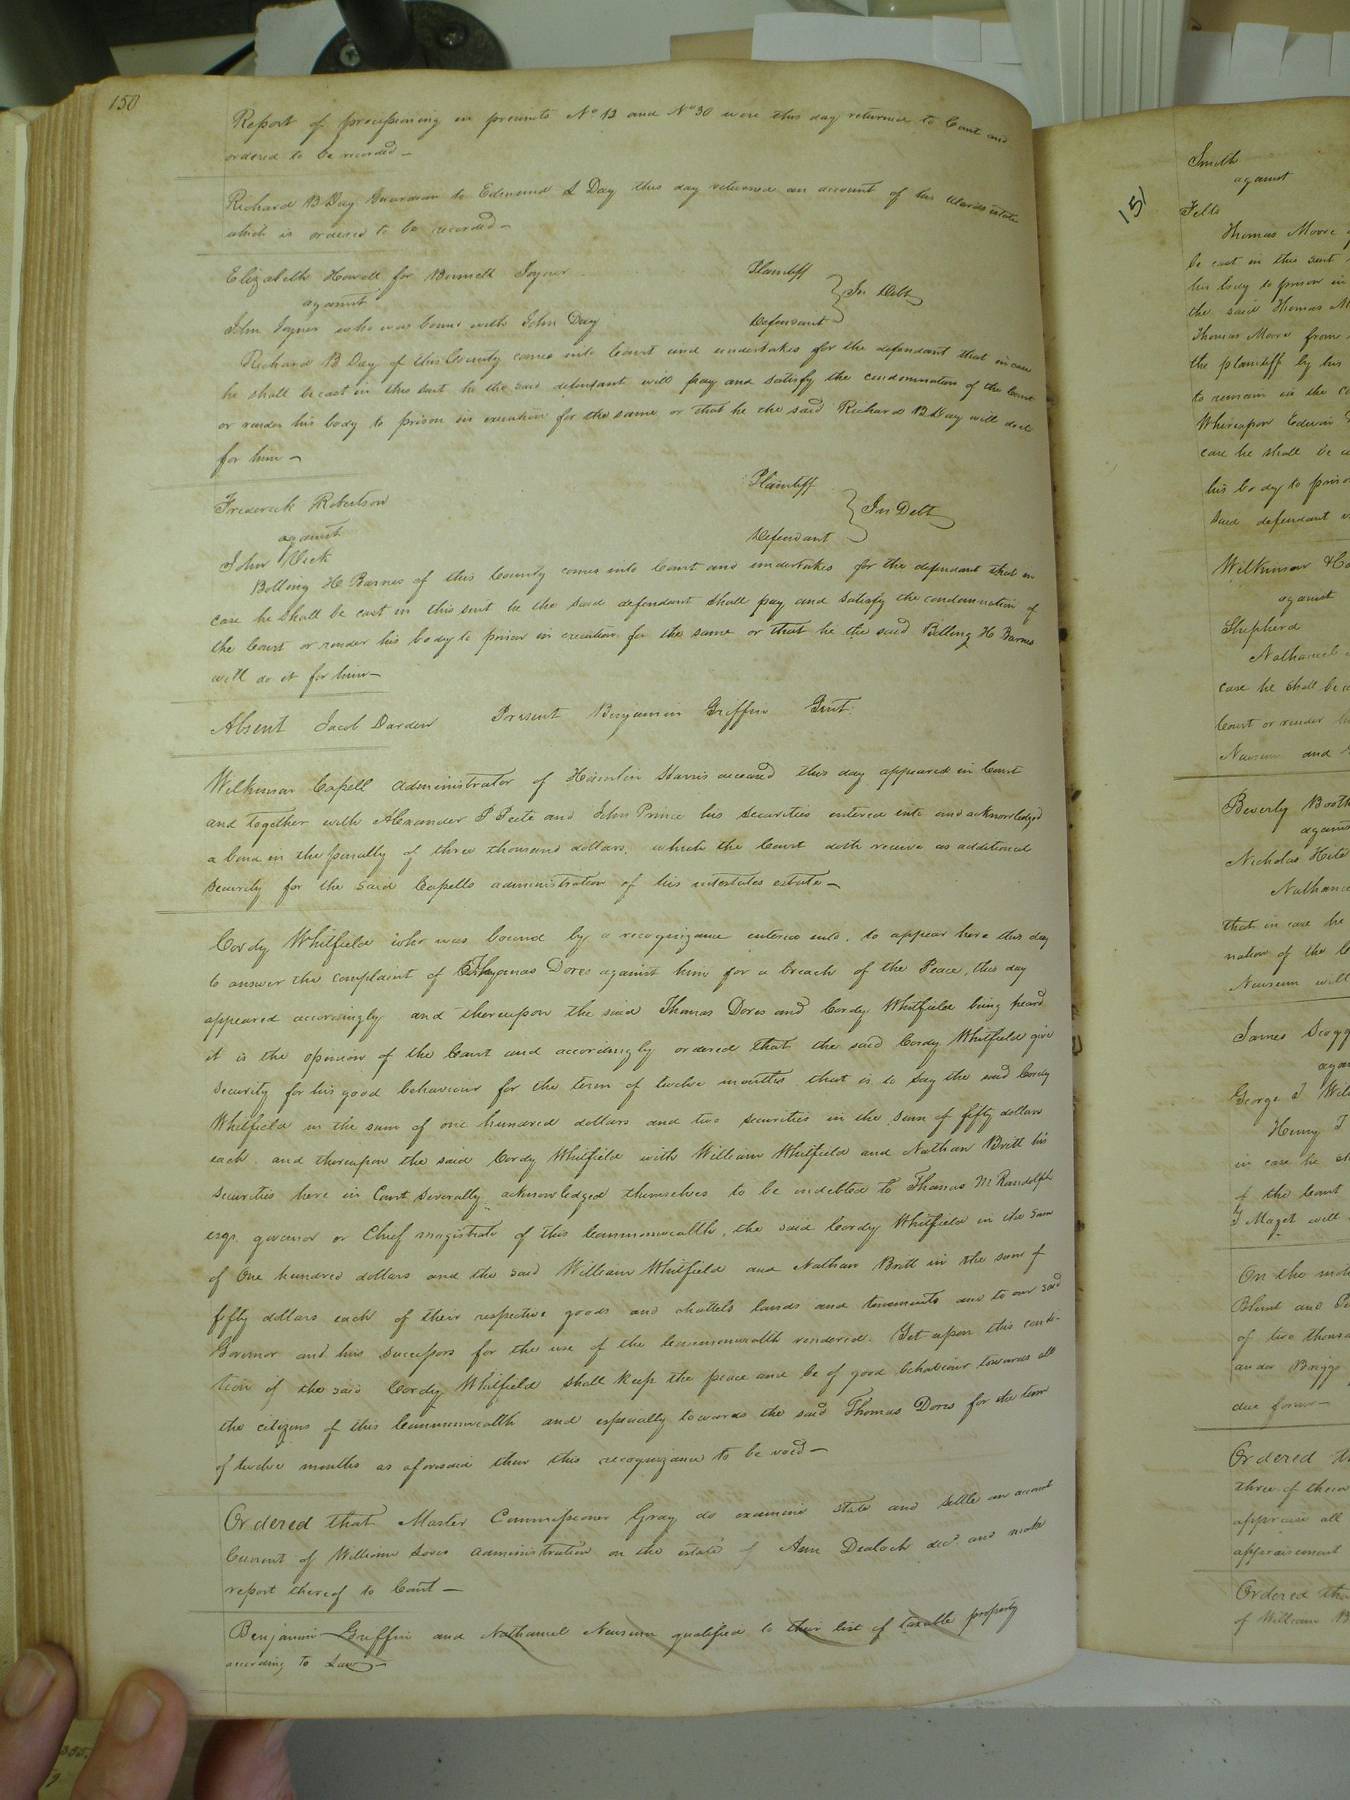 150
Report of processioning in precincts No 13 and No 30 were this day returned to Court and
ordered to be recorded —
Richard B Day Guardian to Edmund S Day this day returned an account of his Wards estate
which is ordered to be recorded —
Elizabeth Howell for Bennett Joyner Plaintiff
against In Debt
John Joyner who was bound with John Day Defendant
Richard B Day of this County comes into Court and undertakes for the defendant that in case
he shall be cast in this suit he the said defendant will pay and satisfy the condemnation of the Court
or render his body to prison in execution for the same or that he the said Richard B Day will do it
for him —
Frederick Robertson Plaintiff
against In Debt
John Vick Defendant
Bolling H Barnes of this County comes into Court and undertakes for the defendant that in
case he shall be cast in this suit he the said defendant shall pay and satisfy the condemnation of
the Court or render his body to prison in execution for the same or that he the said Bolling H Barnes
will do it for him —
Absent Jacob Darden Present Benjamin Griffin Gent.
Wilkinson Capell administrator of Hamlin Harris deceased this day appeared in Court
and together with Alexander P Peete and John Prince his securities entered into and acknowledged
a bond in the penalty of three thousand dollars, which the Court doth receive as additional
security for the said Capells administration of his intestates estate —
Cordy Whitfield who was bound by a recognizance entered into, to appear here this day
to answer the complaint of Thomas Dores against him for a breach of the Peace, this day
appeared accordingly and thereupon the said Thomas Dores and Cordy Whitfield being heard
it is the opinion of the Court and accordingly ordered that the said Cordy Whitfield give
security for his good behaviour for the term of twelve months that is to say the said Cordy
Whitfield in the sum of one hundred dollars and two securities in the sum of fifty dollars
each and thereupon the said Cordy Whitfield with William Whitfield and Nathan Britt his
securities here in Court severally acknowledged themselves to be indebted to Thomas M Randolph
esqr. governor or Chief magistrate of this Commonwealth, the said Cordy Whitfield in the sum
of One hundred dollars and the said William Whitfield and Nathan Britt in the sum of
fifty dollars each of their respective goods and chattels lands and tenements and to our said
Governor and his successors for the use of the Commonwealth rendered. Yet upon this condi-
tion if the said Cordy Whitfield shall keep the peace and be of good behaviour towards all
the citizens of this Commonwealth and especially towards the said Thomas Dores for the term
of twelve months as aforesaid then this recognizance to be void —
Ordered that Master Commissioner Gray do examine state and settle an account
Current of William administration on the estate of Ann decd. and make
report thereof to Court —
Benjamin Griffin and Nathaniel Newsum qualified to their list of taxable property
according to Law —
151
Smith
against
Felts
Thomas Moore
be cast in this suit
his body to prison in
the said Thomas
Thomas Moore from
the plaintiff by his
to remain in the
Whereupon Edwin
case he shall be
his body to
said defendant
Wilkinson
against
Shepherd
Nathaniel
case he shall be
Court or render
Newsum and
Beverly Booth
Nicholas
that in case he
nation of the
Newsum will
James
George
Henry
in case he
of the Court
will
On the
Blunt and
of two
Briggs
due form —
Ordered
three of them
appraise all
appraisement
Ordered
of William